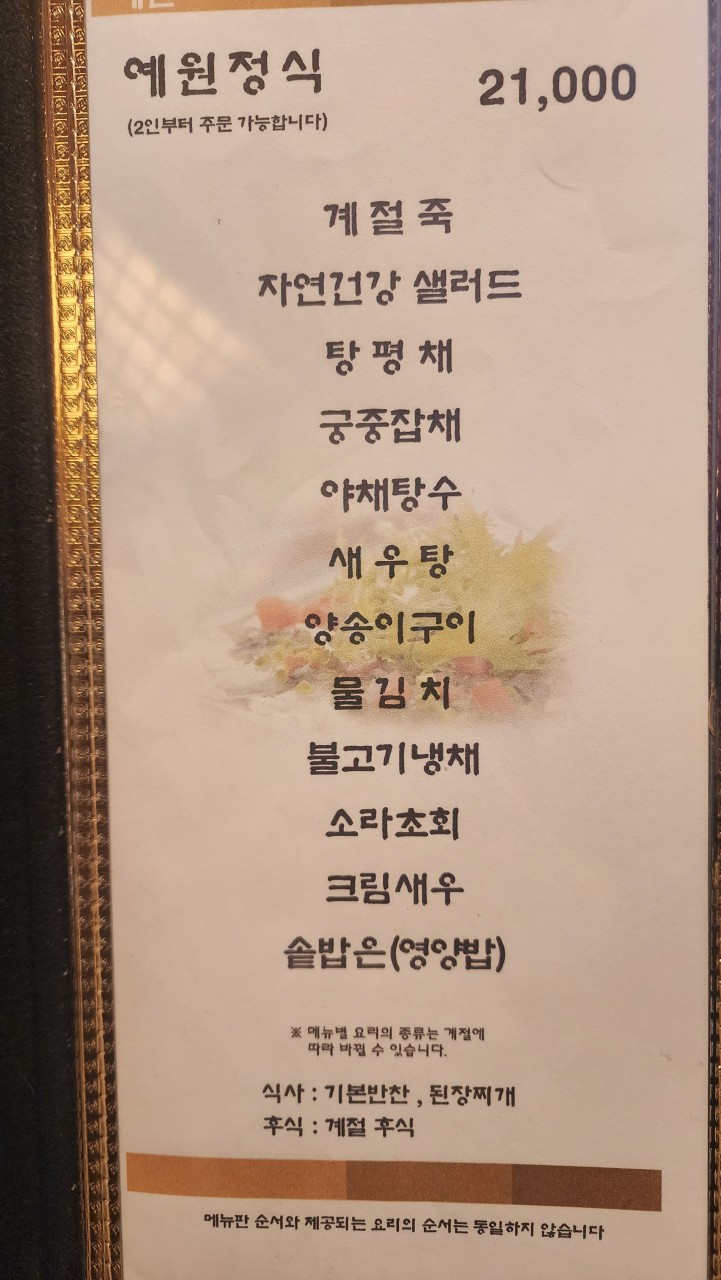 예원정식 21,000
(2인부터 주문 가능합니다)
계절죽
자연건강 샐러드
탕평채
궁중잡채
야채탕수
새우탕
양송이구이
물김치
불고기냉채
소라초회
크림새우
솥밥은(영양밥)
※ 메뉴별 요리의 종류는 계절에
따라 바뀔 수 있습니다.
식사 : 기본반찬 , 된장찌개
후식 : 계절 후식
메뉴판 순서와 제공되는 요리의 순서는 동일하지 않습니다